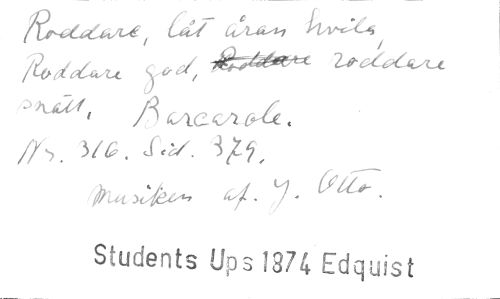 Roddare, låt åran hvila,
Roddare god, Roddare roddare
snäll, Barcarole.
Nr. 316. Sid. 379.
Musiken af. J. Otto.
Students Ups 1874 Edquist